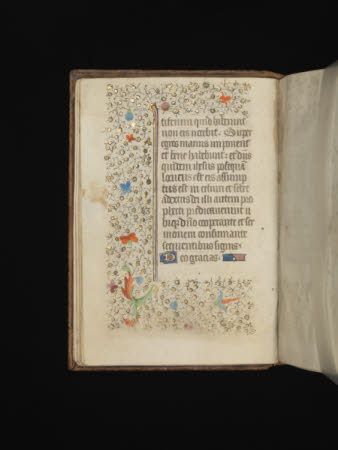 tiferum quid biberint
non eis nocebit. Super
egros manus imponent
et bene habebunt: et dn̄s
quidem ihesus postquam
locutus est eis assump
tus est in celum et sedet
a dextris dei illi autem pro
fecti predicaverunt u
biq; dn̄o cooperante et ser
monem confirmante
sequentibus signis:
Deo gracias.